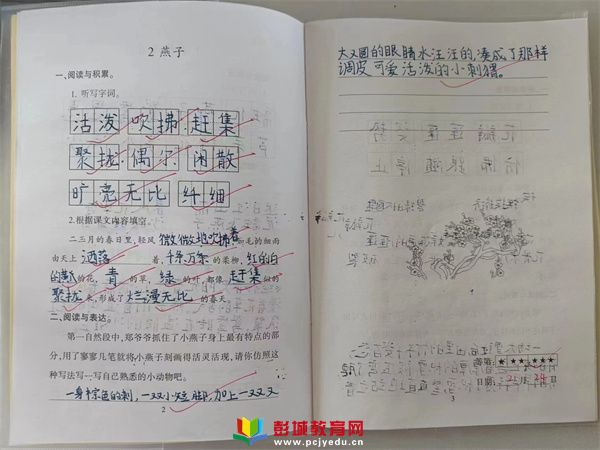 2 燕子
一、阅读与积累。
1. 听写字词。
活泼 吹拂 赶集
聚拢 偶尔 闲散
旷亮无比 纤细
2.根据课文内容填空。
二三月的春日里,轻风微微地吹拂着如毛的细雨
由天上洒落着,千条万条的柔柳,红的白
的黄的花,青的草,绿的叶,都像赶集似的
聚拢来,形成了烂漫无比的春天。
二、阅读与表达。
第一自然段中,郑爷爷抓住了小燕子身上最有特点的部
分,用了寥寥几笔就将小燕子刻画得活灵活现,请你仿照这
种写法写一写自己熟悉的小动物吧。
一身棕色的刺,一双小短脚,加上一双又
2
大又圆的眼睛水汪汪的,凑成了那样
调皮可爱活泼的小刺猬。
等第:★★★★★
日期: 月 日
3
彭城教育网
www.pcjyedu.cn